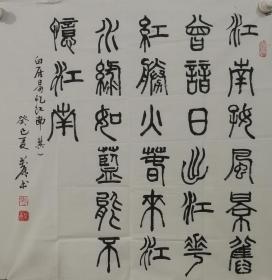 江南好風景舊
曾諳日出江花
紅勝火春來江
水綠如藍能不
憶江南
白居易忆江南其一
癸巳夏